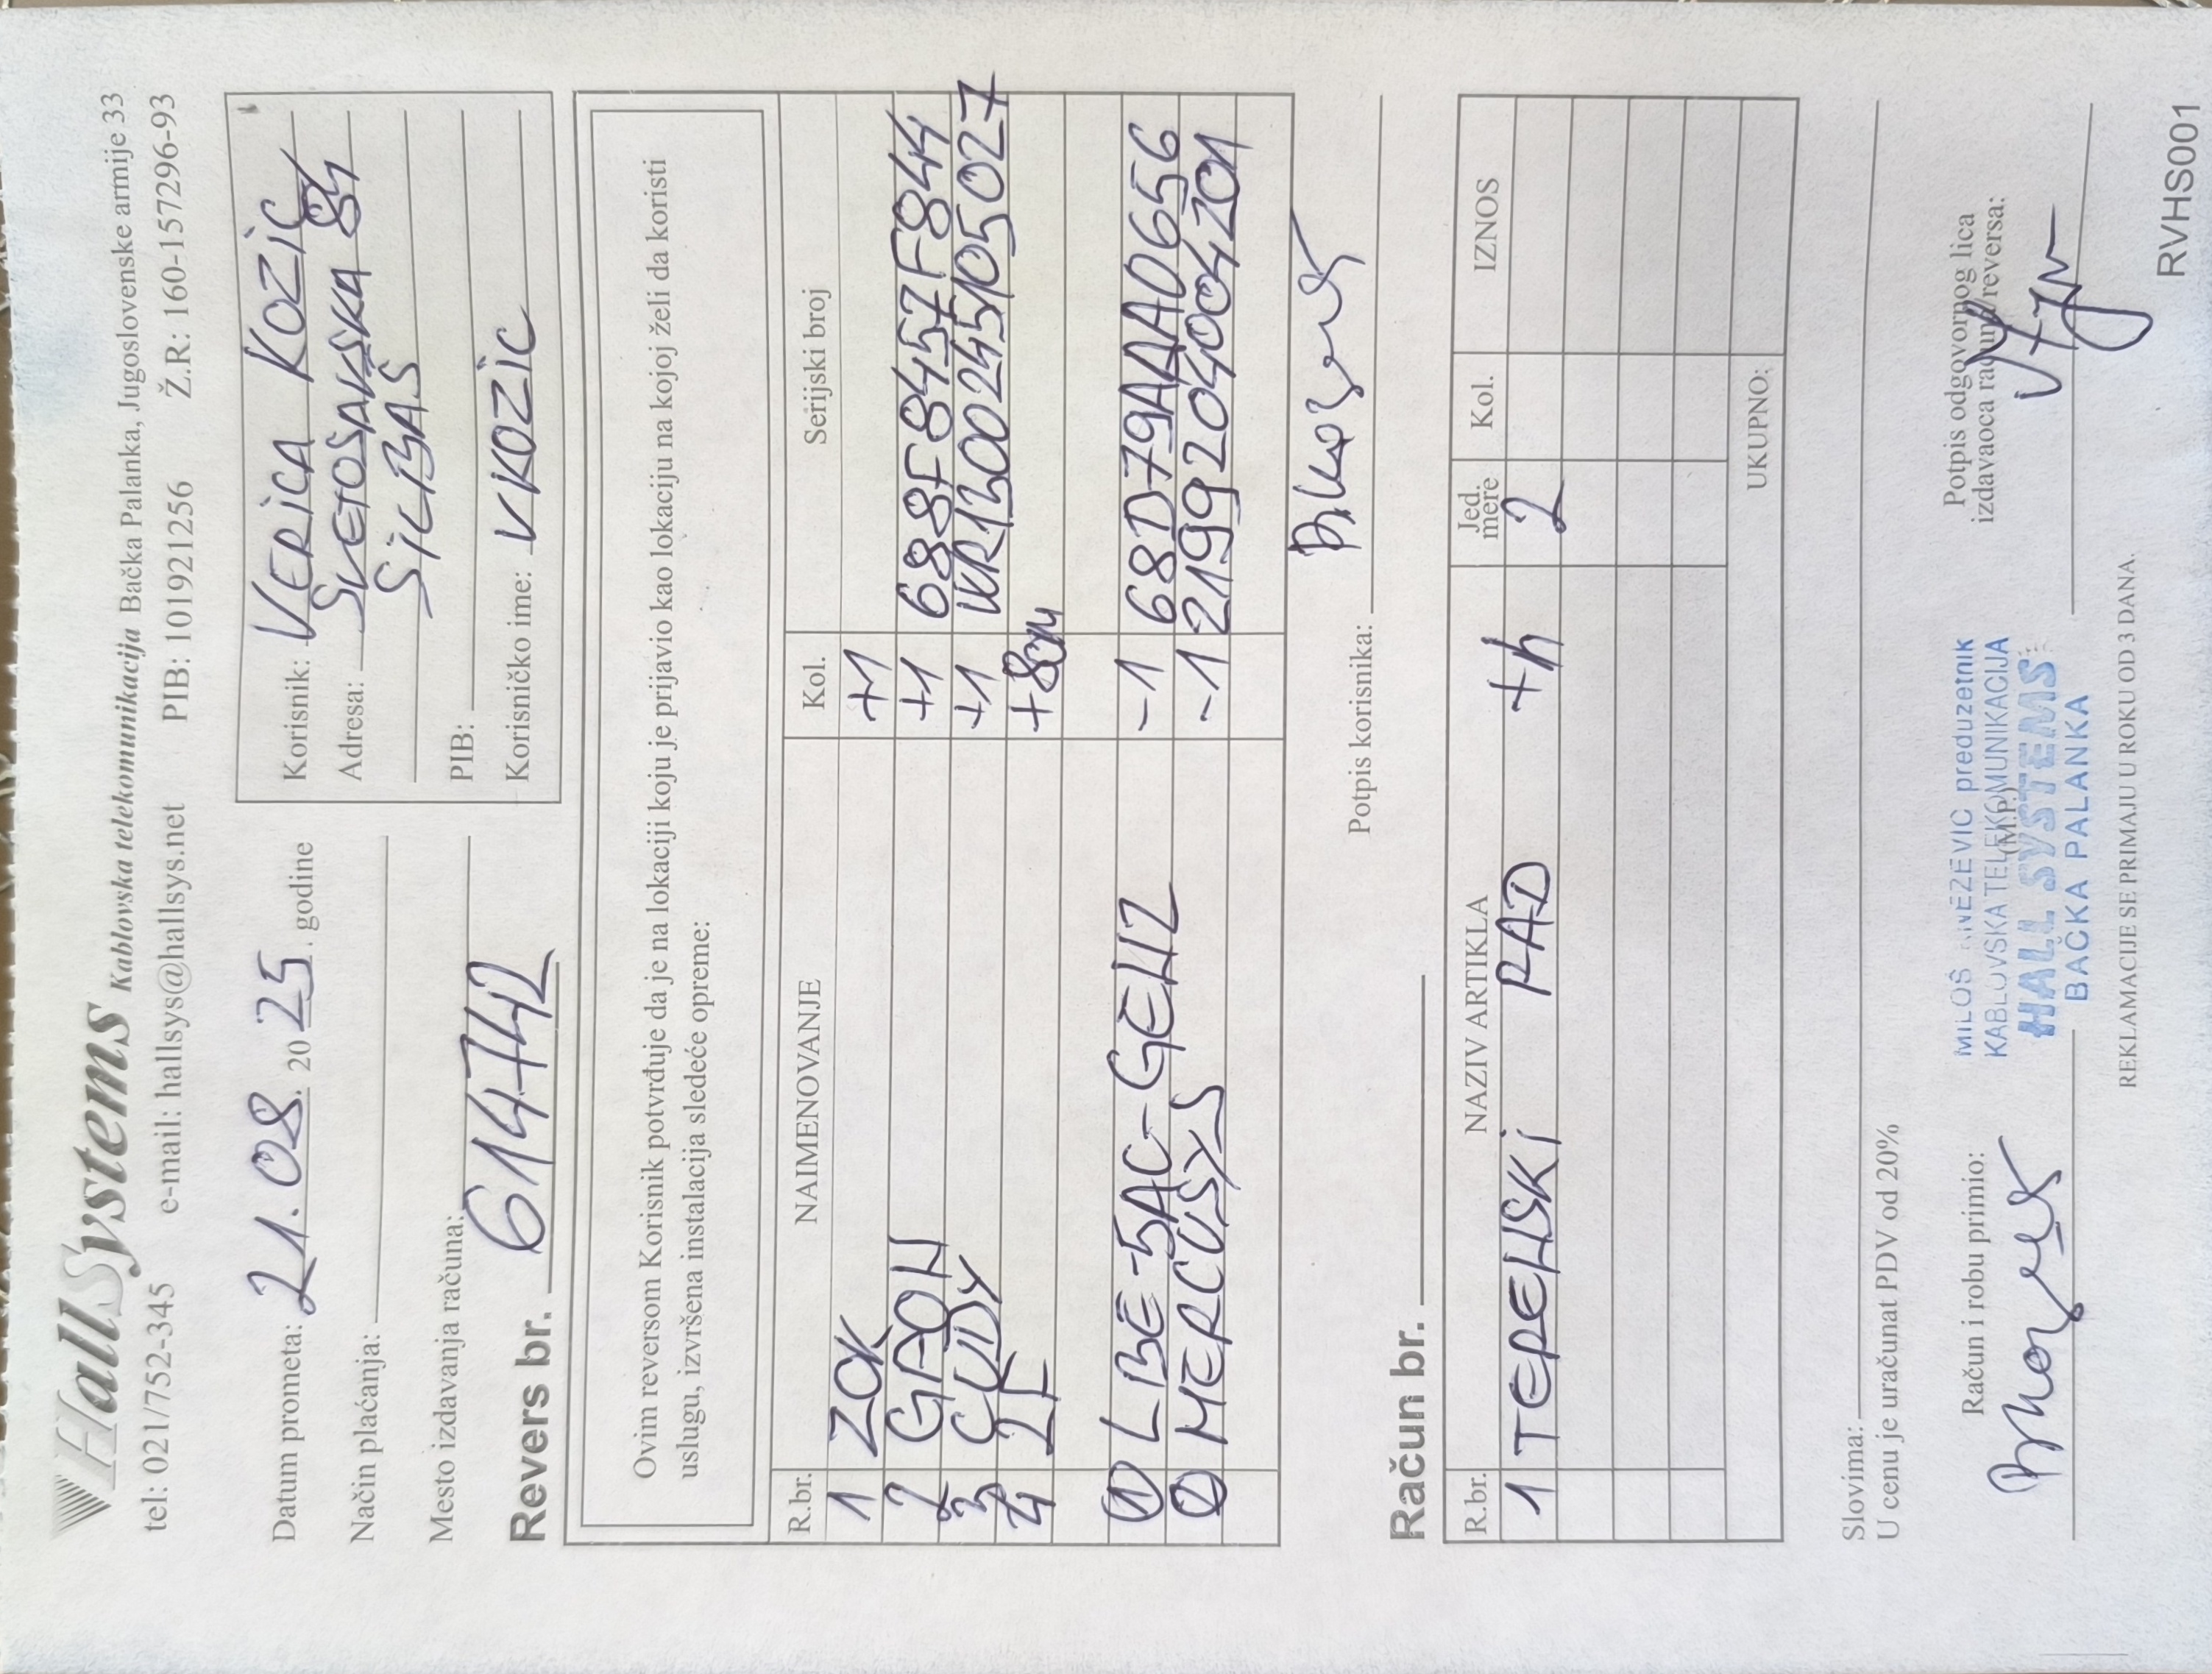 HallSystems Kablovska telekomunikacija Bačka Palanka, Jugoslovenske armije 33
tel: 021/752-345 e-mail: hallsys@hallsys.net PIB: 101921256 Ž.R: 160-157296-93
Datum prometa: 21.08. 2025. godine
Način plaćanja:
Mesto izdavanja računa:
Revers br. 614742
Korisnik: VERICA KOZIC
Adresa: SVETOSAVSKA 84
SILBAŠ
PIB:
Korisničko ime: VKOZIC
Ovim reversom Korisnik potvrđuje da je na lokaciji koju je prijavio kao lokaciju na kojoj želi da koristi
uslugu, izvršena instalacija sledeće opreme:
R.br. NAIMENOVANJE Kol. Serijski broj
1 ZOK +1
2 GPON +1 688F8457F844
3 CUDY +1 WR1300245105027
4 2F +80m
1 LBE-5AC-GEN2 -1 68D79AAA0656
2 MERCUSYS -1 2199204004201
Potpis korisnika:
Račun br.
R.br. NAZIV ARTIKLA Jed. mere Kol. IZNOS
1 TERENSKI RAD +h 2
UKUPNO:
Slovima:
U cenu je uračunat PDV od 20%
Račun i robu primio:
MILOŠ KNEŽEVIĆ preduzetnik
KABLOVSKA TELEKOMUNIKACIJA
(M.P.)
HALL SYSTEMS
BAČKA PALANKA
Potpis odgovornog lica
izdavaoca računa/reversa:
REKLAMACIJE SE PRIMAJU U ROKU OD 3 DANA.
RVHS001